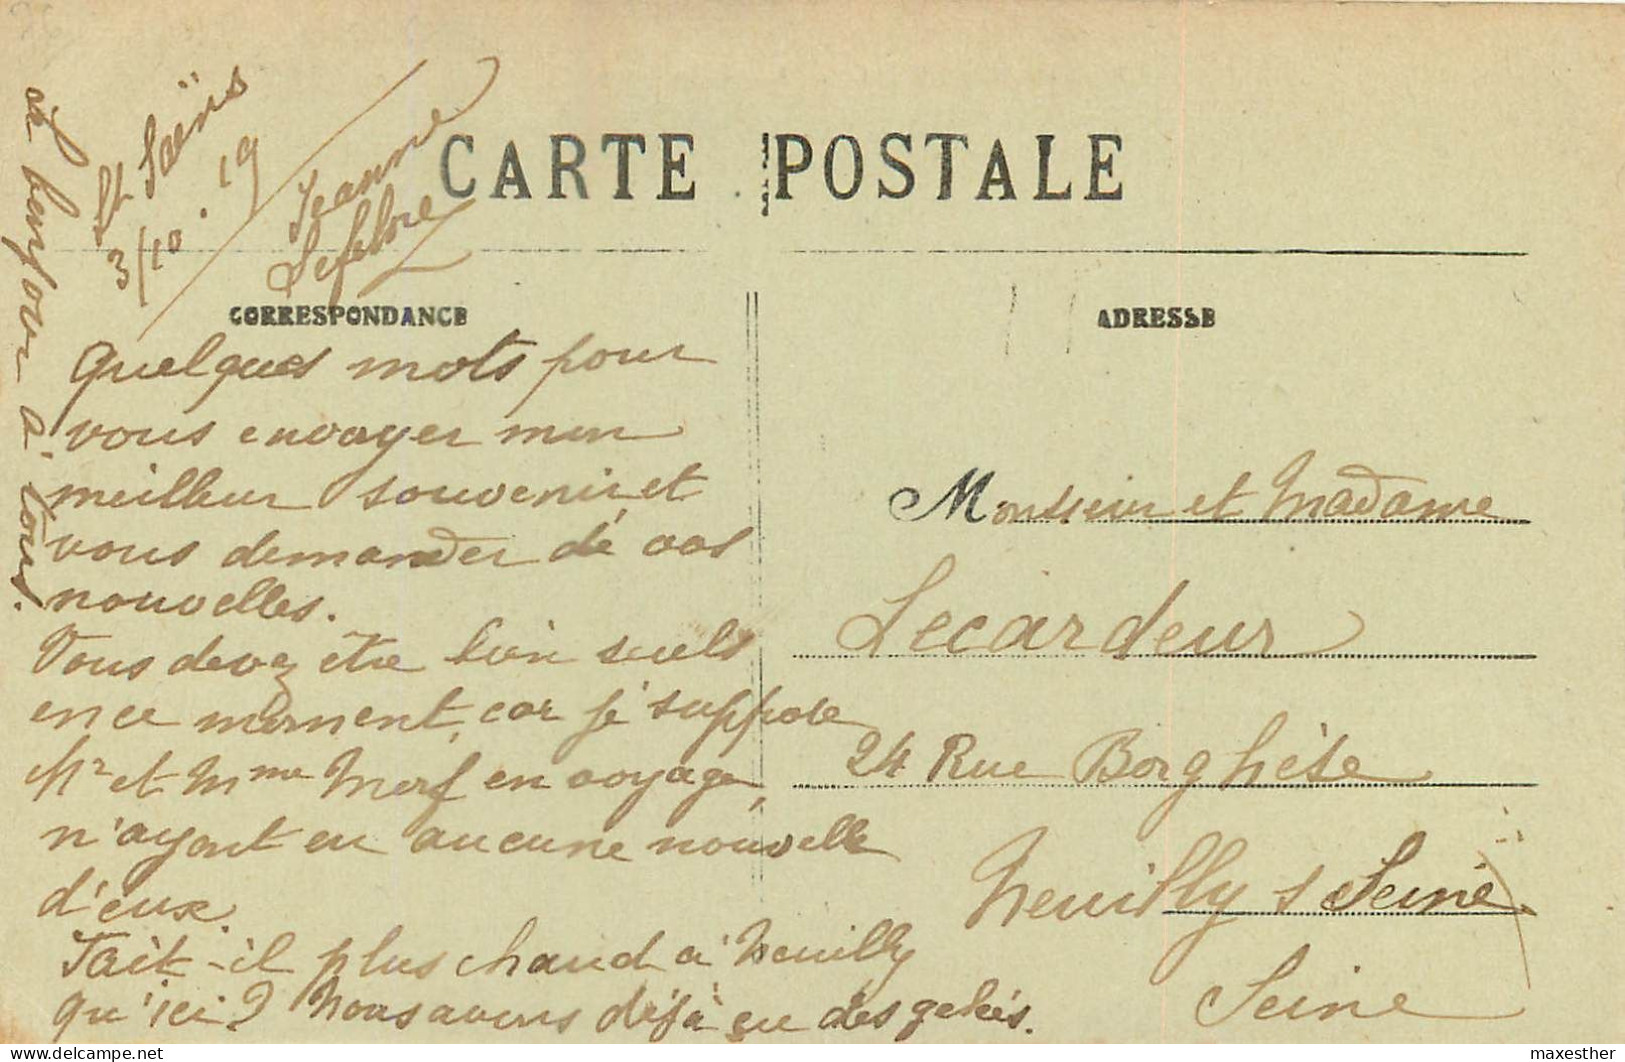 CARTE POSTALE
St Saëns
3/10.19
Jeanne
Lefebvre
CORRESPONDANCE
Quelques mots pour
vous envoyer mon
meilleur souvenir et
vous demander de vos
nouvelles.
Vous devez être bien seuls
en ce moment, car je suppose
Mr et Mme Morf en voyage,
n'ayant eu aucune nouvelle
d'eux.
Fait-il plus chaud à Neuilly
qu'ici? Nous avons déjà eu des gelées.
bonjour à tous.
ADRESSE
Monsieur et Madame
Lecardeur
24 Rue Borghèse
Neuilly s Seine
Seine
maxesther